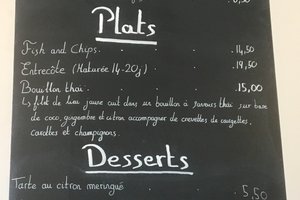 Plats
Fish and Chips. . .14,50
Entrecôte (Maturée 14-20j) . .19,50
Bouillon thaï . . .15,00
↳ filet de lieu jaune cuit dans un bouillon à saveurs thaï sur base
de coco, gingembre et citron accompagner de crevettes de courgettes,
carottes et champignons.
Desserts
Tarte au citron meringué . . 5,50